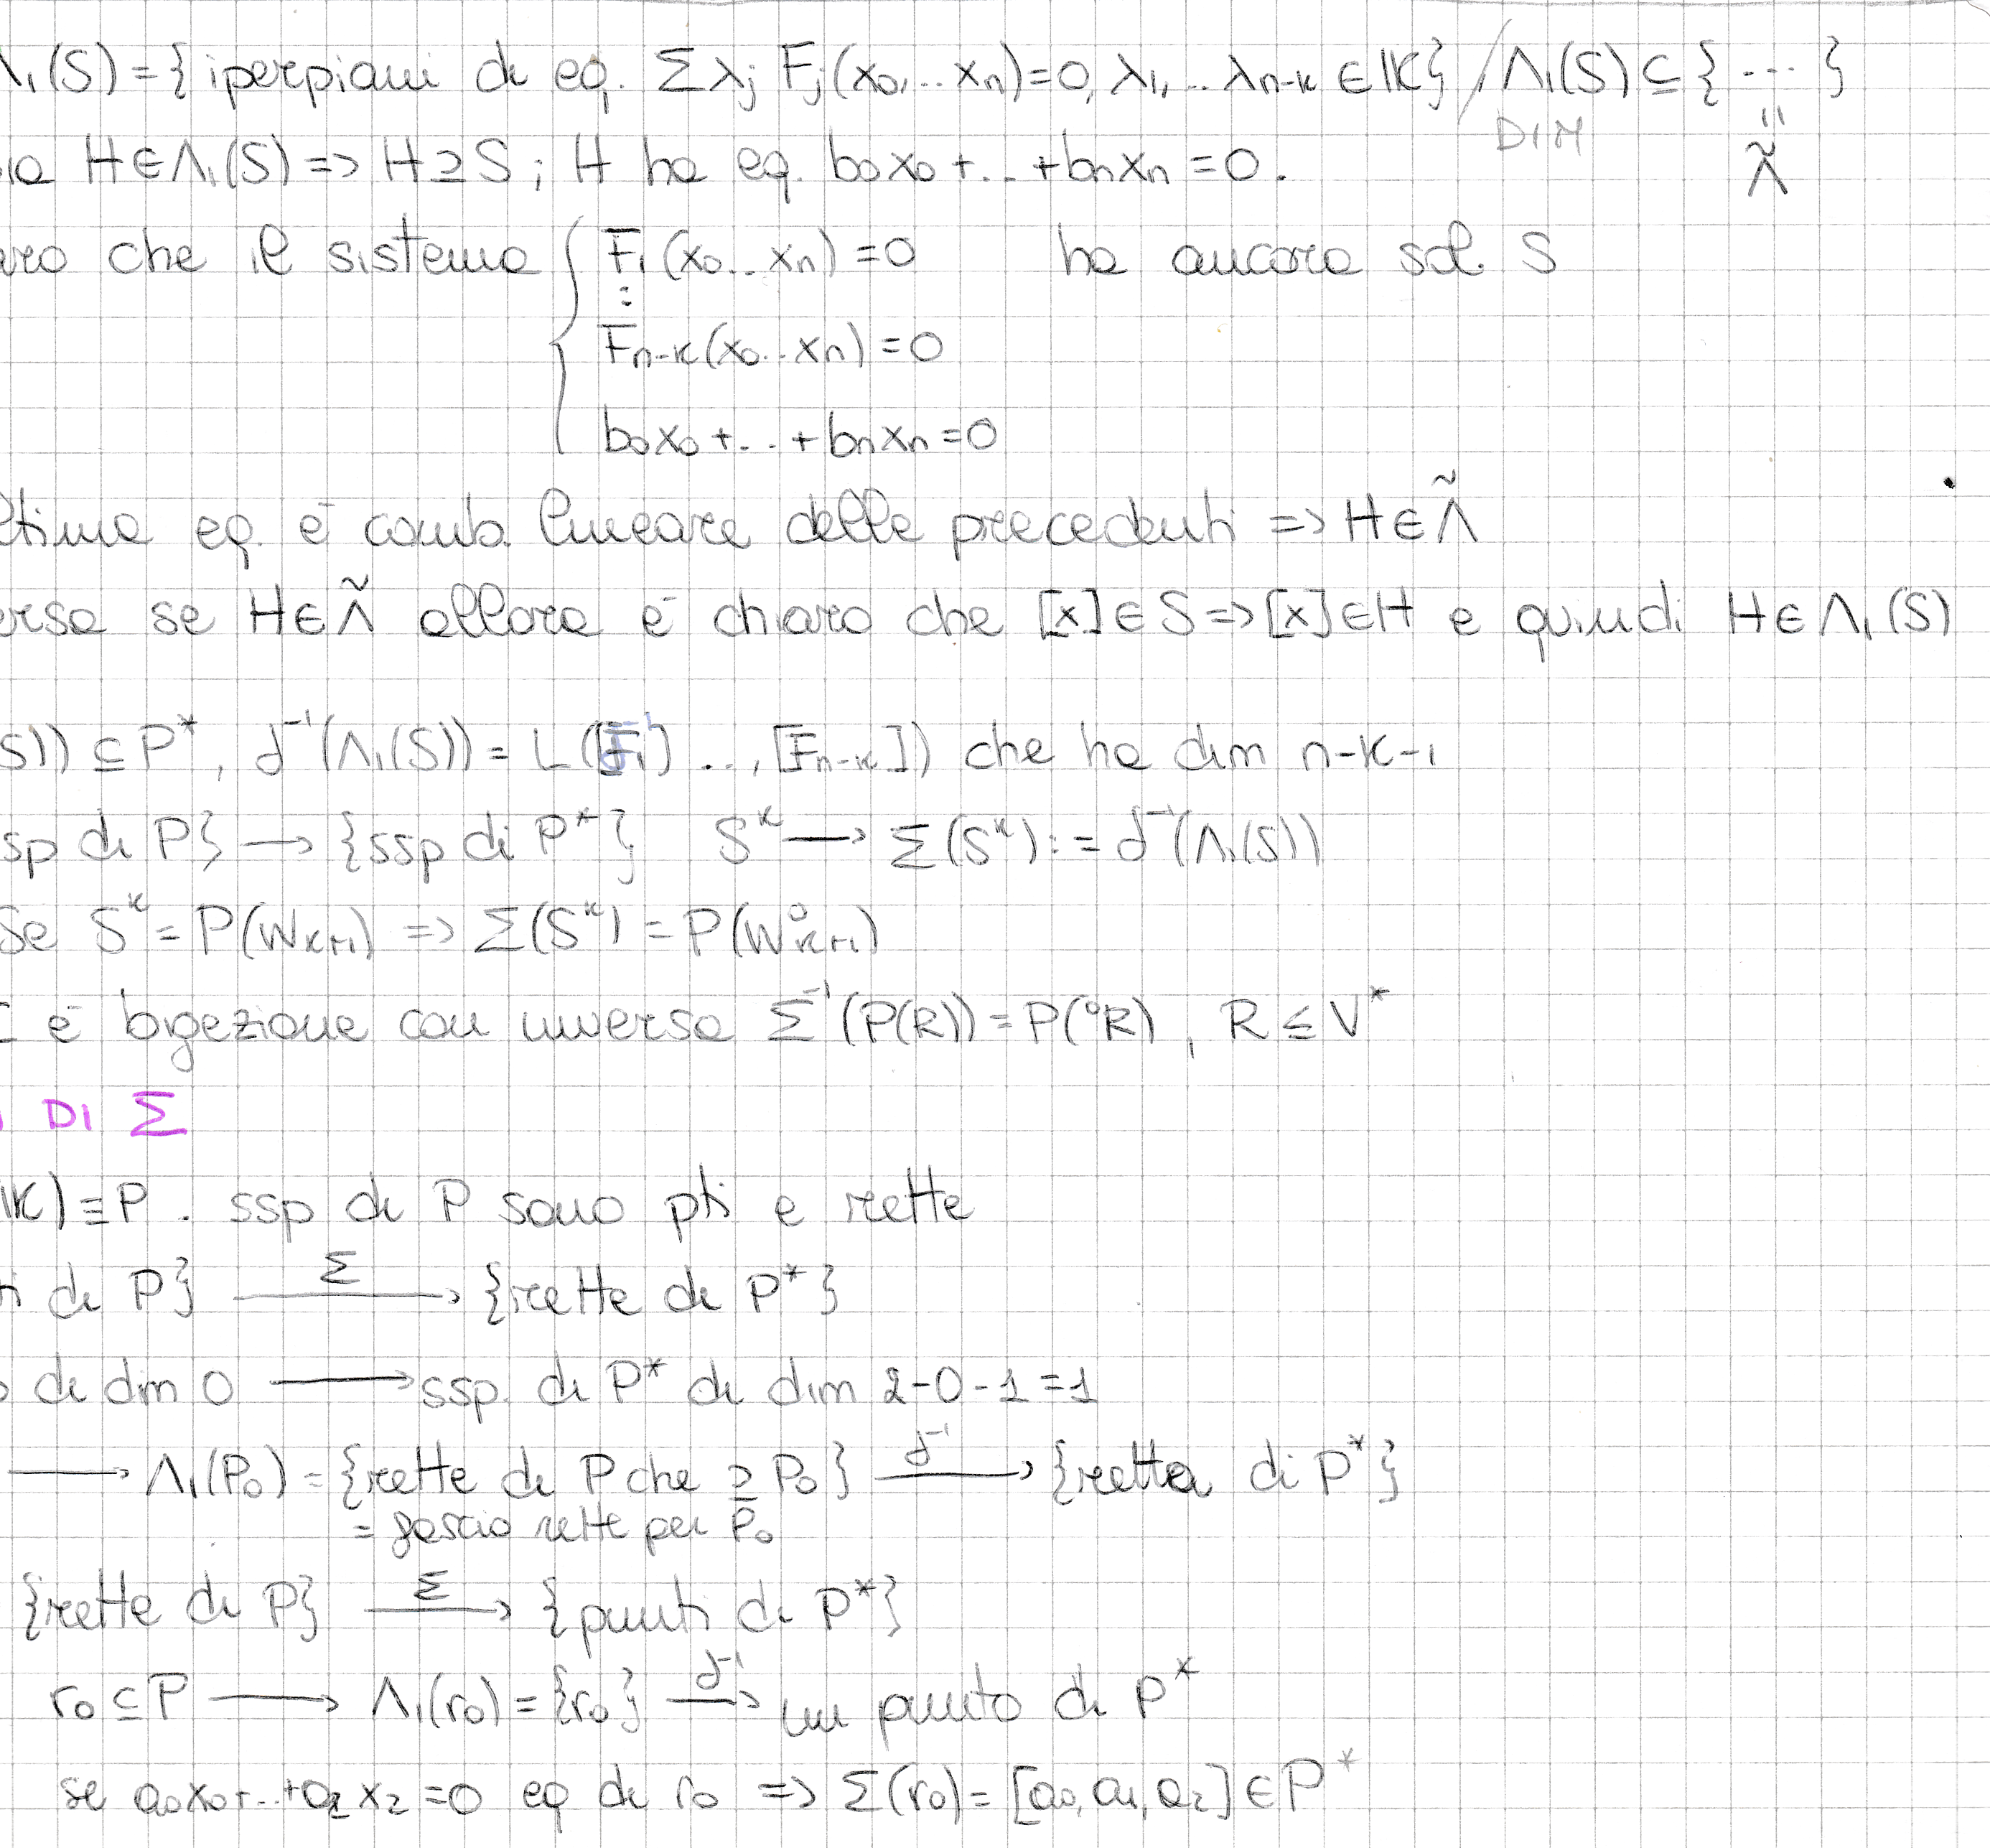 Λ₁(S) = { iperpiani di eq. Σ λj Fj (x₀,... xn) = 0, λ₁,... λn-k ∈ 𝕂} / Λ₁(S) ⊆ { ... }
DIM " Λ̃
H ∈ Λ₁(S) => H ⊇ S ; H ha eq. b₀x₀ + .. + bnxn = 0.
che il sistema { F₁ (x₀.. xn) = 0 ha ancora sol. S
:
Fn-k (x₀.. xn) = 0
b₀x₀ + .. + bnxn = 0
eq. è comb. lineare delle precedenti => H ∈ Λ̃
se H ∈ Λ̃ allora è chiaro che [x] ∈ S => [x] ∈ H e quindi H ∈ Λ₁(S)
S)) ⊆ P*, δ⁻¹(Λ₁(S)) = L([F₁] ..., [Fn-k]) che ha dim n-k-1
ssp di P} → {ssp di P*} Sᵏ → Σ(Sᵏ) := δ⁻¹(Λ₁(S))
Se Sᵏ = P(Wk+1) => Σ(Sᵏ) = P(W°k+1)
è bigezione con inversa Σ⁻¹(P(R)) = P(°R), R ≤ V*
DI Σ
𝕂) ≡ P . ssp di P sono pti e rette
di P} —Σ→ {rette di P*}
di dim 0 → ssp. di P* di dim 2-0-1 = 1
→ Λ₁(P₀) = {rette di P che ⊇ P₀} —δ⁻¹→ {retta di P*}
= fascio rette per P₀
{rette di P} —Σ→ {punti di P*}
r₀ ⊆ P → Λ₁(r₀) = {r₀} —δ⁻¹→ un punto di P*
se a₀x₀+..+a₂x₂ = 0 eq di r₀ => Σ(r₀) = [a₀, a₁, a₂] ∈ P*